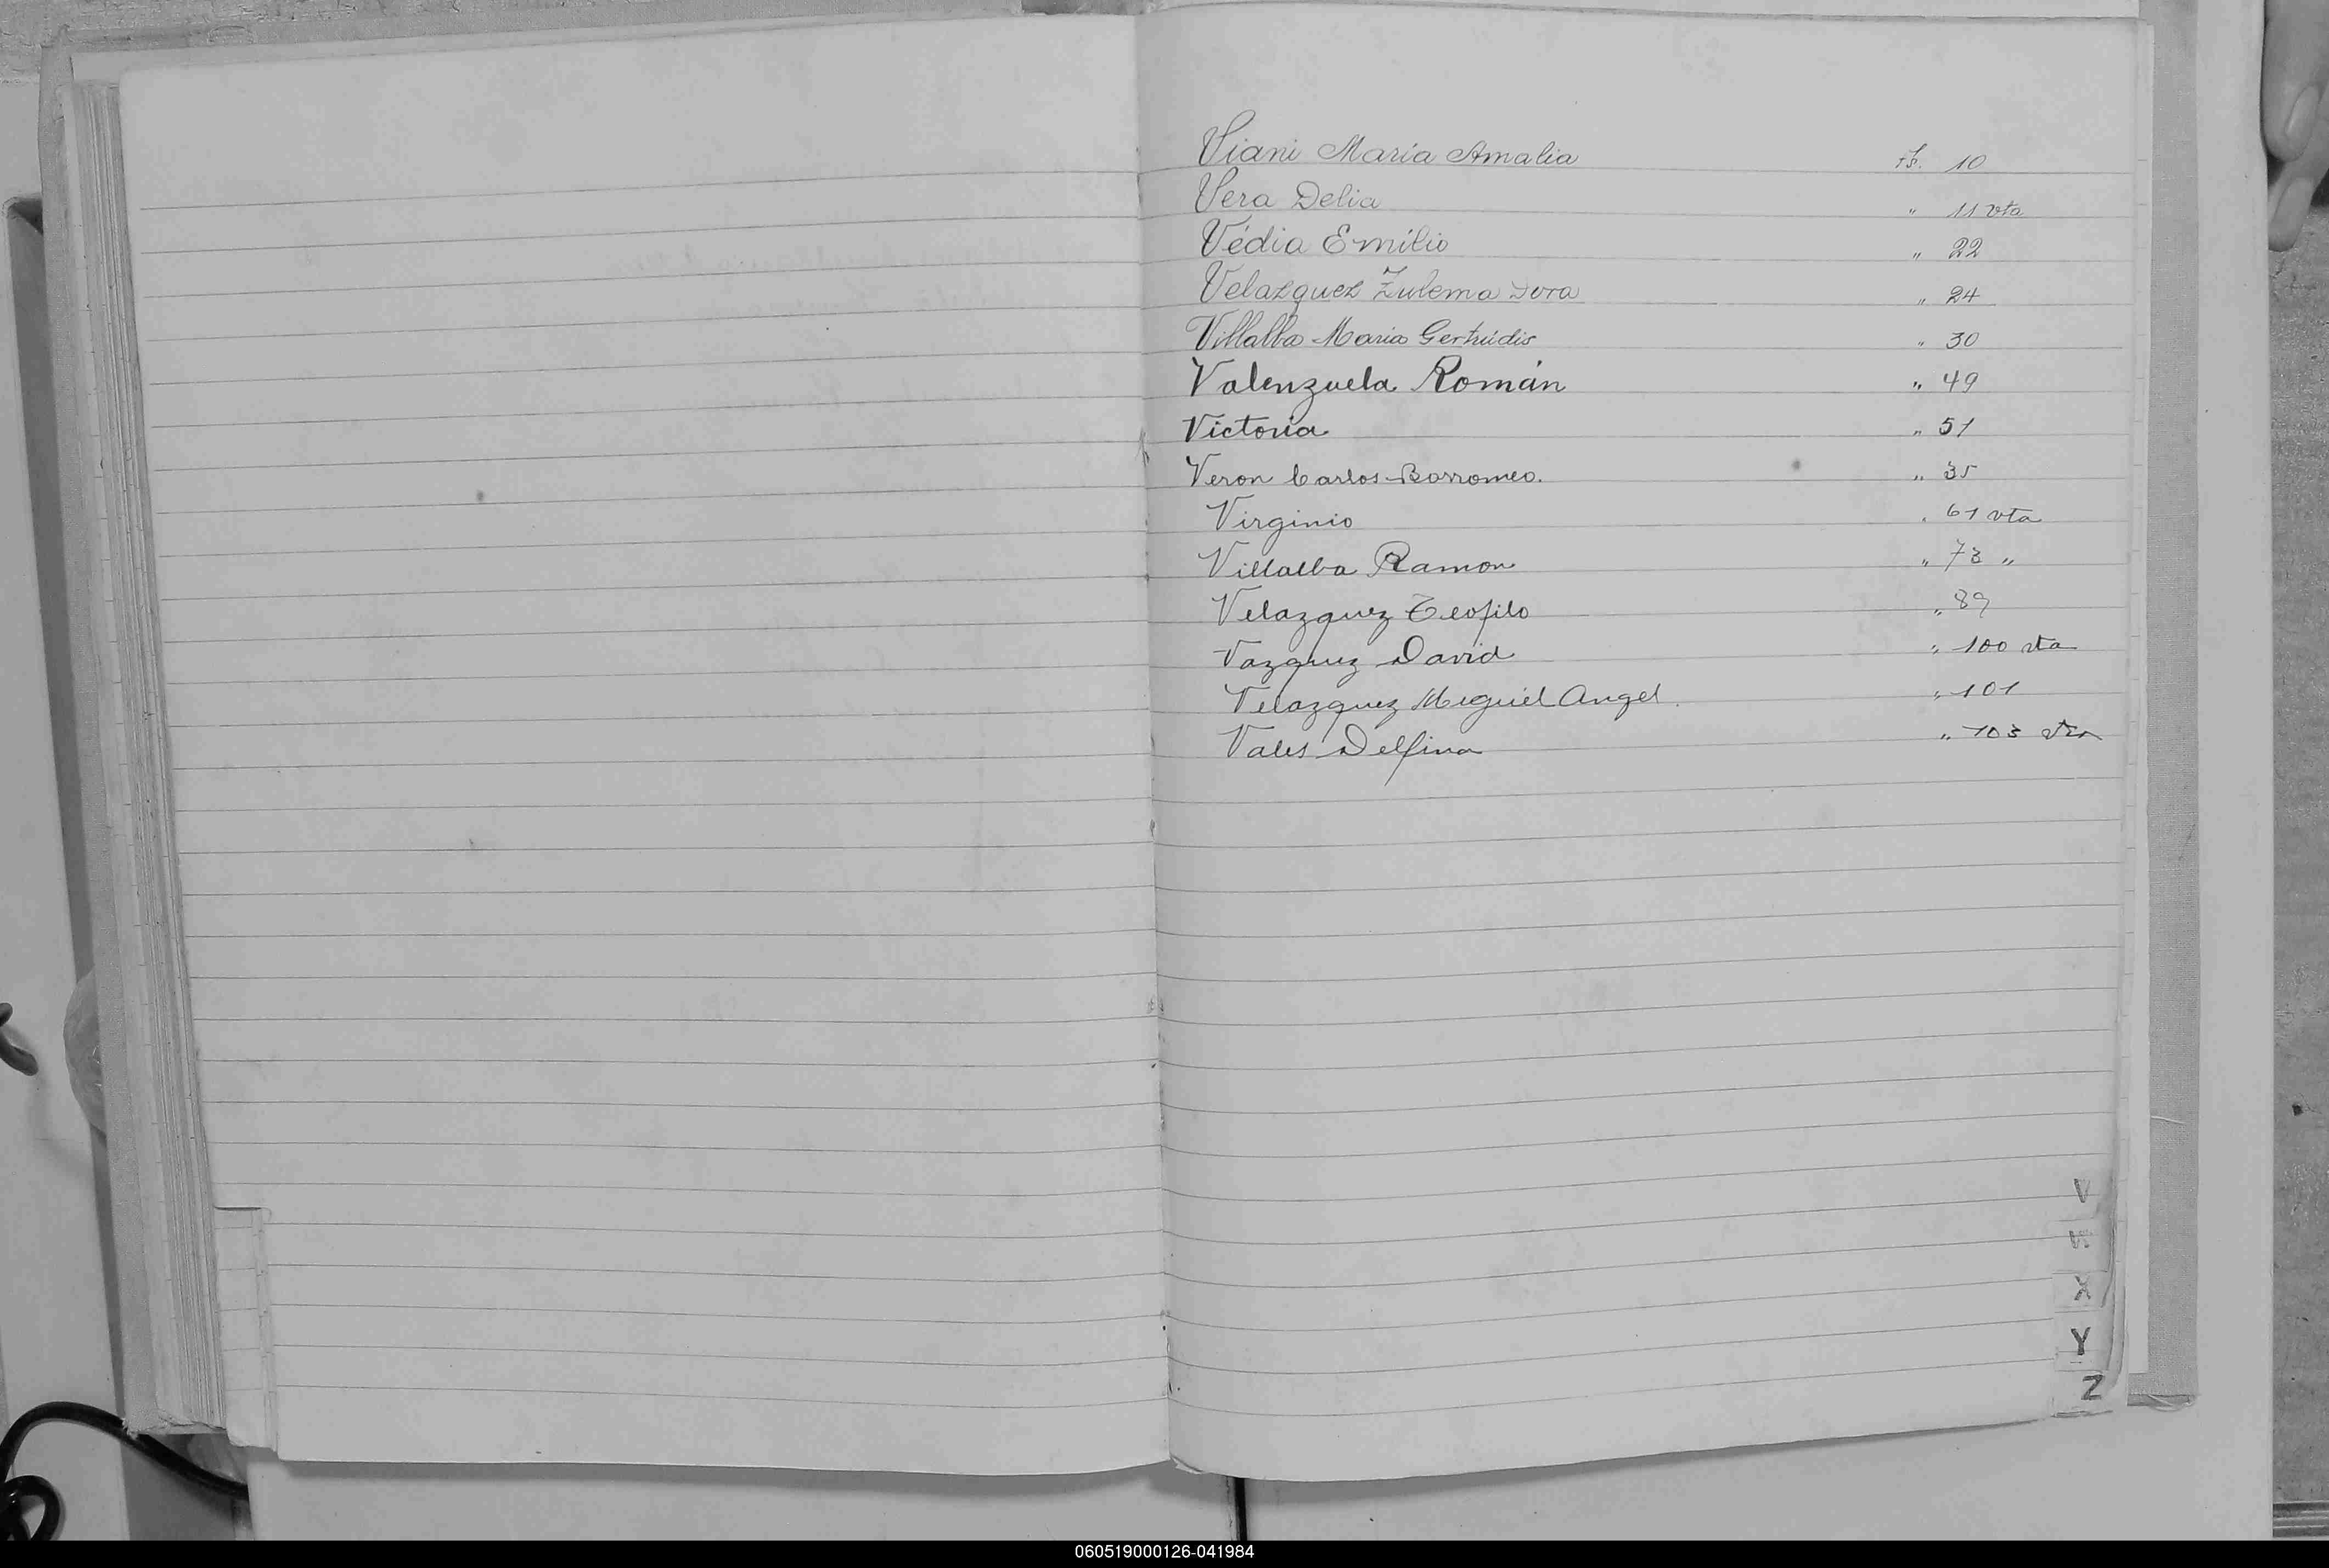 Viani María Amalia fs. 10
Vera Delia " 11 vta
Védia Emilio " 22
Velazquez Zulema Dora " 24
Villalba María Gertrúdis " 30
Valenzuela Román " 49
Victoria " 51
Veron Carlos Borromeo. " 35
Virginio " 61 vta
Villalba Ramon " 73 "
Velazquez Teofilo " 89
Vazquez David " 100 vta
Velazquez Miguel Angel. " 101
Vales Delfina " 103 vta
V
W
X
Y
Z
060519000126-041984